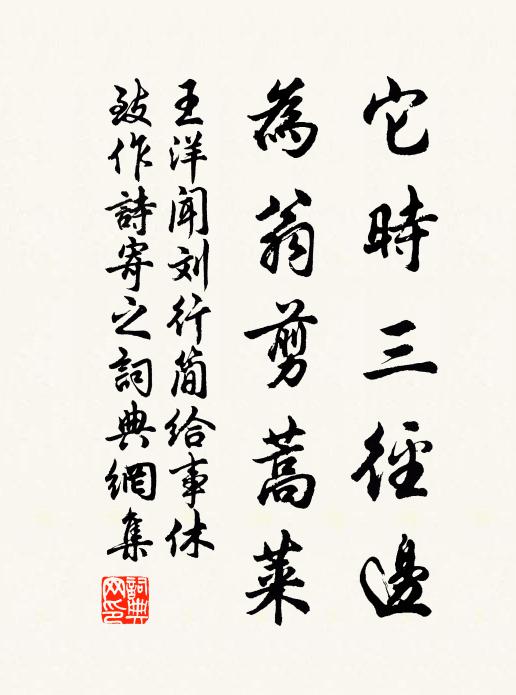 它時三徑邊
為翁剪蒿萊
王洋闻刘行简给事休
致作詩寄之詞典網集
詞典網印